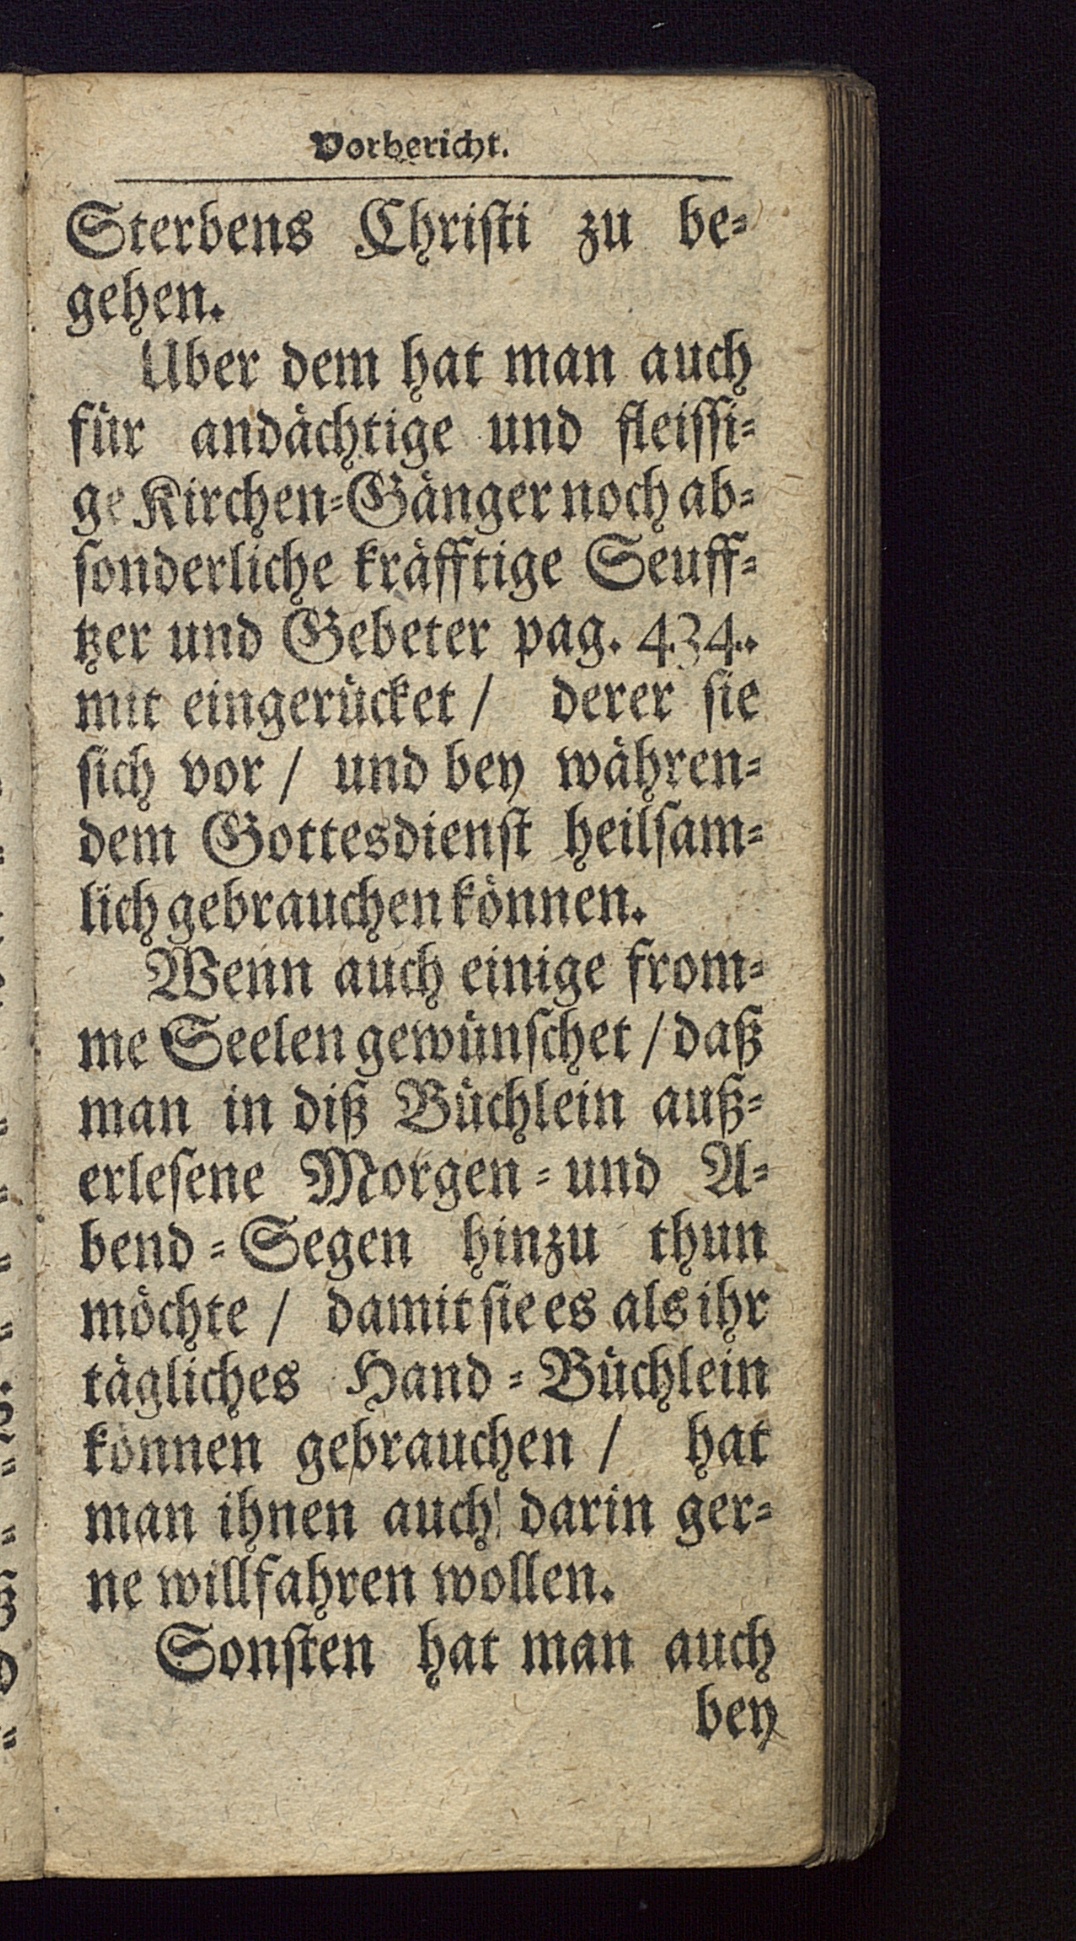 Vorbericht.
Sterbens Christi zu be-
gehen.
Uber dem hat man auch
für andächtige und fleissi-
ge Kirchen-Gänger noch ab-
sonderliche kräfftige Seuff-
tzer und Gebeter pag. 434.
mit eingerücket / derer sie
sich vor / und bey währen-
dem Gottesdienst heilsam-
lich gebrauchen können.
Wenn auch einige from-
me Seelen gewünschet / daß
man in diß Büchlein auß-
erlesene Morgen- und A-
bend-Segen hinzu thun
möchte / damit sie es als ihr
tägliches Hand-Büchlein
können gebrauchen / hat
man ihnen auch darin ger-
ne willfahren wollen.
Sonsten hat man auch
bey